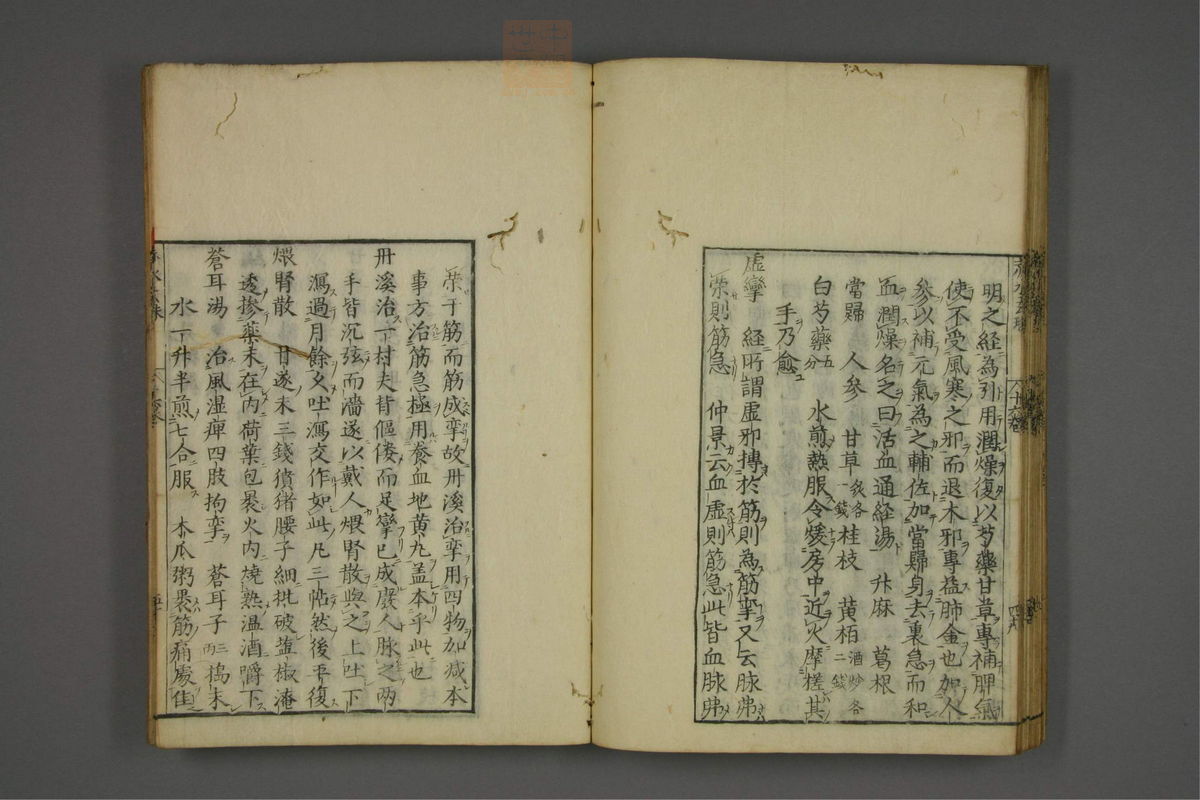 明之経為引用潤燥復以芍藥甘草專補脾氣
使不受風寒之邪而退木邪專益肺金也加人
參以補元氣為之輔佐加當歸身去裏急而和
血潤燥名之曰活血通経湯 升麻 葛根
當歸 人參 甘草炙各一錢 桂枝 黄栢酒炒各二錢
白芍藥五分 水煎熱服令煖房中近火摩搓其
手乃愈
虚攣 経所謂虚邪摶於筋則為筋攣又云脉弗
榮則筋急 仲景云血虚則筋急此皆血脉弗
榮于筋而筋成攣故丹溪治攣用四物加减本
事方治筋急極用養血地黄丸盖本乎此也
丹溪治一村夫背傴僂而足攣已成廢人脉之两
手皆沉弦而濇遂以戴人煨腎散與之上吐下
瀉過月餘又吐瀉交作如此凡三帖然後平復
煨腎散 甘遂末三錢㹠猪腰子細批破塩椒淹
透掺藥末在内荷葉包裹火内燒熟温酒嚼下
蒼耳湯 治風湿痺四肢拘攣 蒼耳子三两 搗末
水一升半煎七合服 木瓜粥裹筋痛處佳